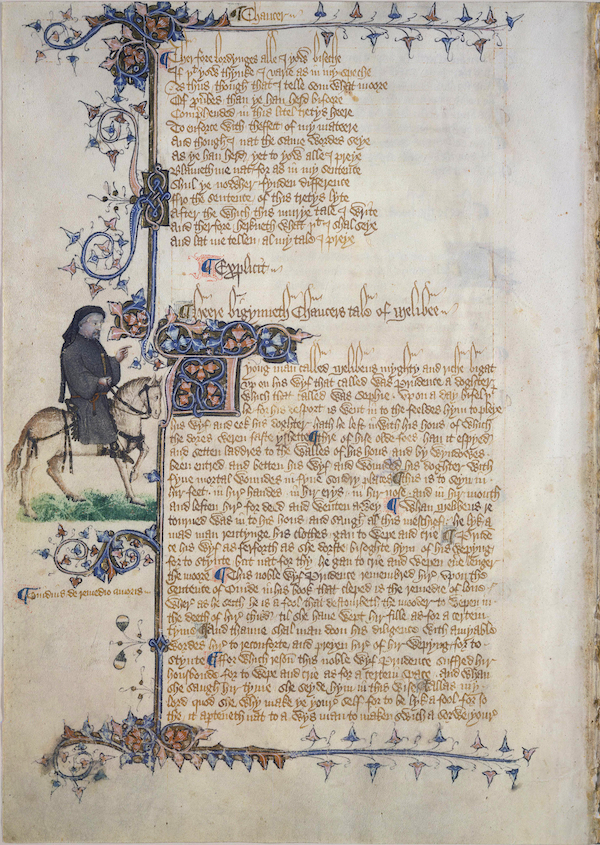 Chaucer
Therfore lordynges alle I yow biseche
If þt yow thynke I varie as in my speche
As thus though that I telle som what moore
Of prouerbes than ye han herd bifoore
Comprehended in this litel tretys heere
To enforce with theffect of my mateere
And though I nat the same wordes seye
As ye han herd yet to yow alle I preye
Blameth me nat for as in my sentence
Shul ye nowher fynden difference
Fro the sentence of this tretys lyte
After the which this murye tale I write
And therfore herkneth what þt I shal seye
And lat me tellen al my tale I preye
Explicit
Heere bigynneth Chaucers tale of Melibee
A yong man called Melibeus myghty and riche bigat
vp on his wyf that called was Prudence a doghter
which that called was Sophie vpon a day bifel þt
he for his desport is went in to the feeldes hym to pleye
his wyf and eek his doghter hath he left in with his hous of which
the dores weren faste yshette Thre of hise olde foos han it espyed
and setten laddres to the walles of his hous and by wyndowes
been entred and betten his wyf and wounded his doghter with
fyue mortal woundes in fyue sondry places this is to seyn in
hir feet in hir handes in hir erys in hir nose and in hir mouth
and leften hir for deed and wenten awey Whan Melibeus re
tourned was in to his hous and saugh al this meschief he lyk a
mad man rentynge his clothes gan to wepe and crie Pruden
ce his wyf as ferforth as she dorste bisoghte hym of his wepyng
for to stynte but nat for thy he gan to crie and wepen euere lenger
the moore This noble wyf Prudence remembred hir vpon the
sentence of Ouide in his book that cleped is the remedie of loue
Ouidius de remedio amoris
where as he seith he is a fool that destourbeth the mooder to wepen in
the deeth of hir child til she haue wept hir fille as for a certein
tyme and thanne shal man doon his diligence with amyable
wordes hir to reconforte and preyen hir of hir wepyng for to
stynte For which reson this noble wyf Prudence suffred hir
housbonde for to wepe and crie as for a certein space and whan
she saugh hir tyme she seyde hym in this wise Allas my
lord quod she why make ye youre self for to be lyk a fool for so
the it aperteneth nat to a wys man to maken swich a sorwe youre